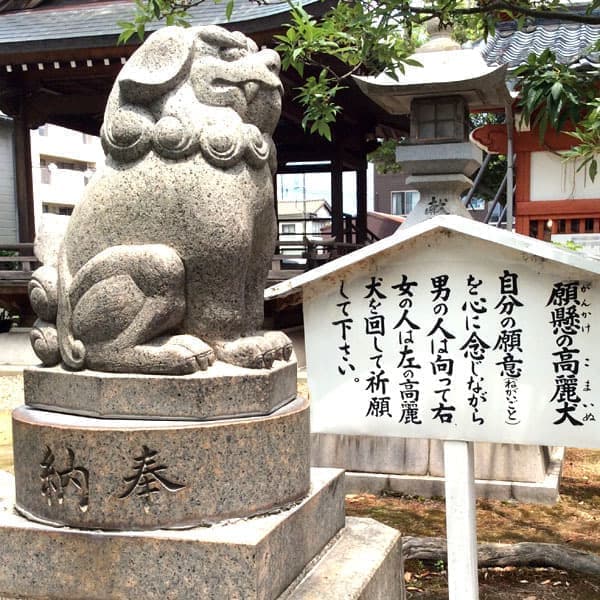 願懸の高麗犬
がんかけ こまいぬ
自分の願意(ねがいごと)
を心に念じながら
男の人は向って右
女の人は左の高麗
犬を回して祈願
して下さい。
奉納
献